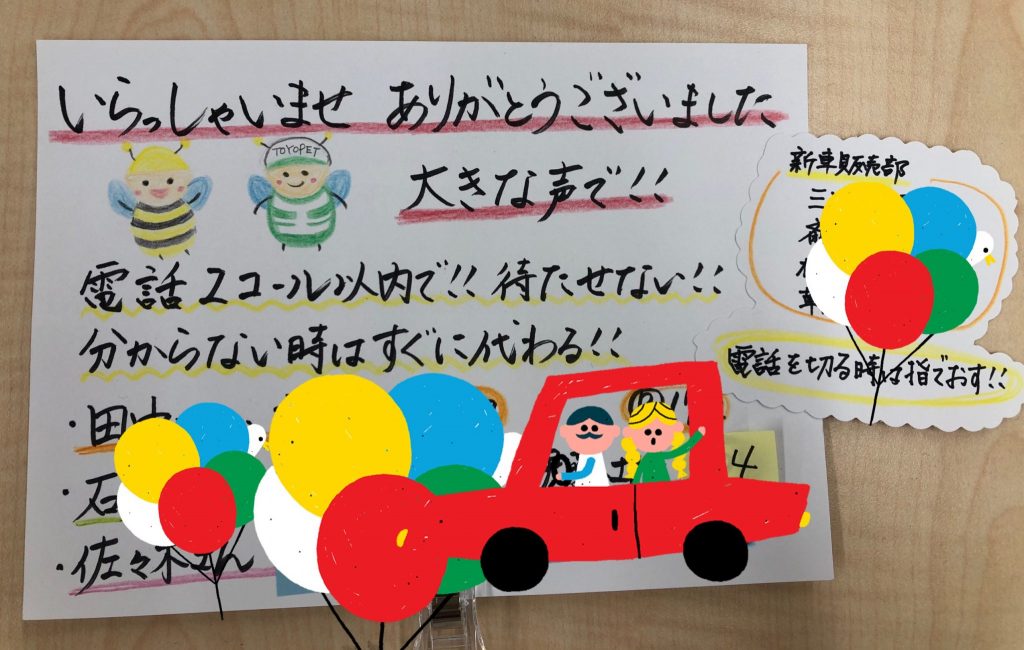 いらっしゃいませ ありがとうございました
TOYOPET
大きな声で!!
電話2コール以内で!! 待たせない!!
分からない時はすぐに代わる!!
・田中
・石
・佐々木さん
4
新車販売部
三
電話を切る時は指でおす!!